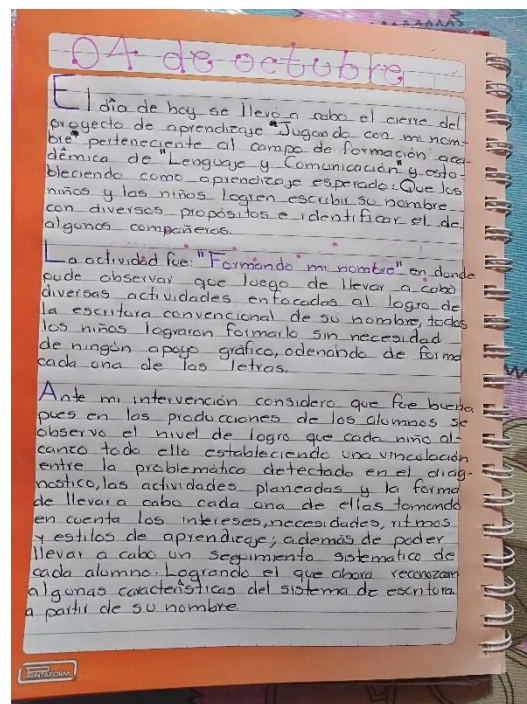 04 de octubre
El día de hoy se llevó a cabo el cierre del
proyecto de aprendizaje "Jugando con mi nom-
bre" perteneciente al campo de formación aca-
démica de "Lenguaje y Comunicación" y esta-
bleciendo como aprendizaje esperado: Que los
niños y las niñas logren escribir su nombre
con diversos propósitos e identificar el de
algunos compañeros.
La actividad fue: "Formando mi nombre" en donde
pude observar que luego de llevar a cabo
diversas actividades enfocadas al logro de
la escritura convencional de su nombre, todos
los niños lograron formarlo sin necesidad
de ningún apoyo gráfico, odenando de forma
cada una de las letras.
Ante mi intervención considero que fue buena
pues en las producciones de los alumnos se
observo el nivel de logro que cada niño al-
canzo todo ello estableciendo una vinculación
entre la problemática detectado en el diag-
nostico, las actividades planeadas y la forma
de llevar a cabo cada una de ellas tomando
en cuenta los intereses, necesidades, ritmos
y estilos de aprendizaje; además de poder
llevar a cabo un seguimiento sistematico de
cada alumno. Logrando el que ahora reconozcan
algunas características del sistema de escritura
a partir de su nombre
PRINTAFORM